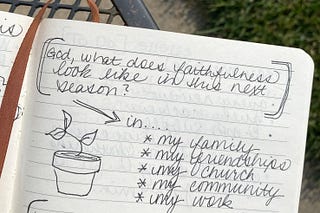 is
God, what does faithfulness
look like in this next
season?
in....
* my family
* my friendships
* my church
* my community
* my work